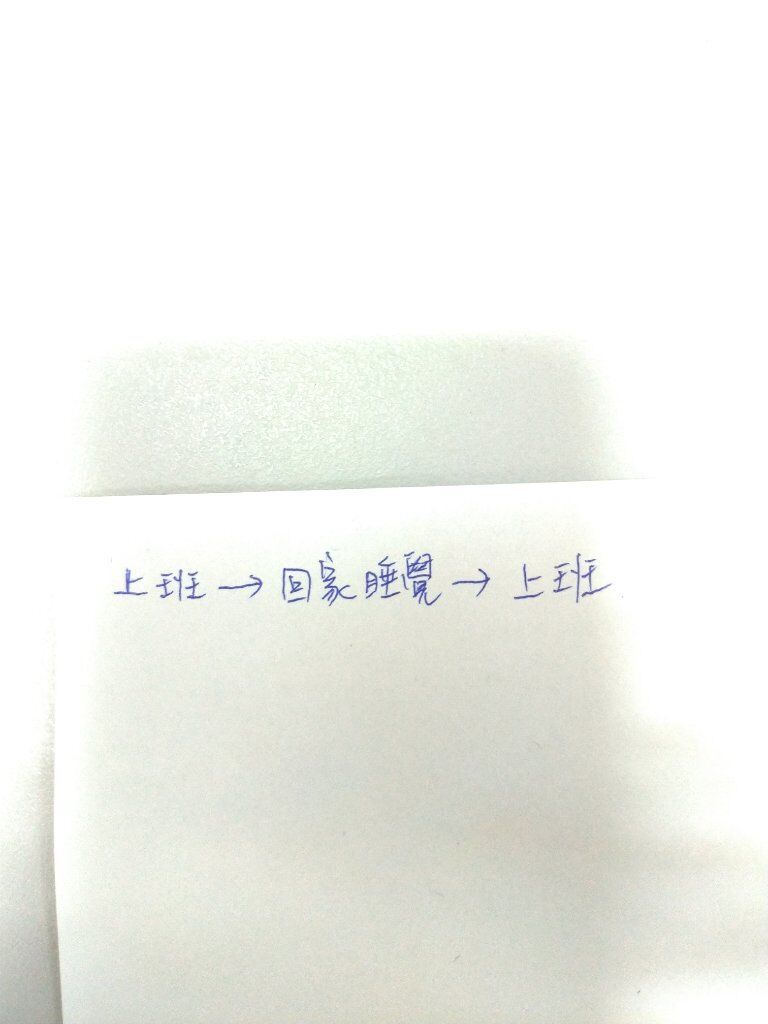 上班→回家睡覺→上班